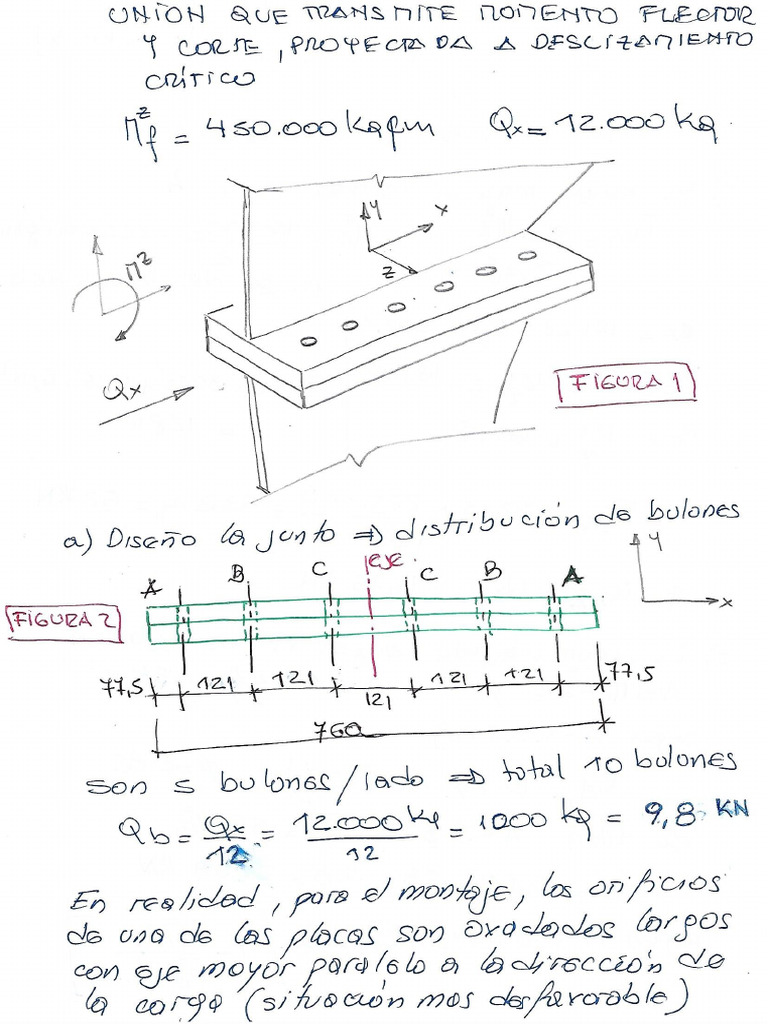 UNIÓN QUE TRANSMITE MOMENTO FLECTOR
Y CORTE, PROYECTADA A DESLIZAMIENTO
CRÍTICO
M_f^z = 450.000 kgfm Qx = 12.000 kg
Y
X
Z
M^z
Qx
FIGURA 1
a) Diseño la junta ⇒ distribución de bulones
FIGURA 2
A B C EJE C B A
Y
X
77,5 121 121 121 121 121 77,5
760
son 5 bulones/lado ⇒ total 10 bulones
Qb = Qx/12 = 12.000 kg/12 = 1000 kg = 9,8 KN
En realidad, para el montaje, los orificios
de una de las placas son ovalados largos
con eje mayor paralelo a la dirección de
la carga (situación mas desfavorable)